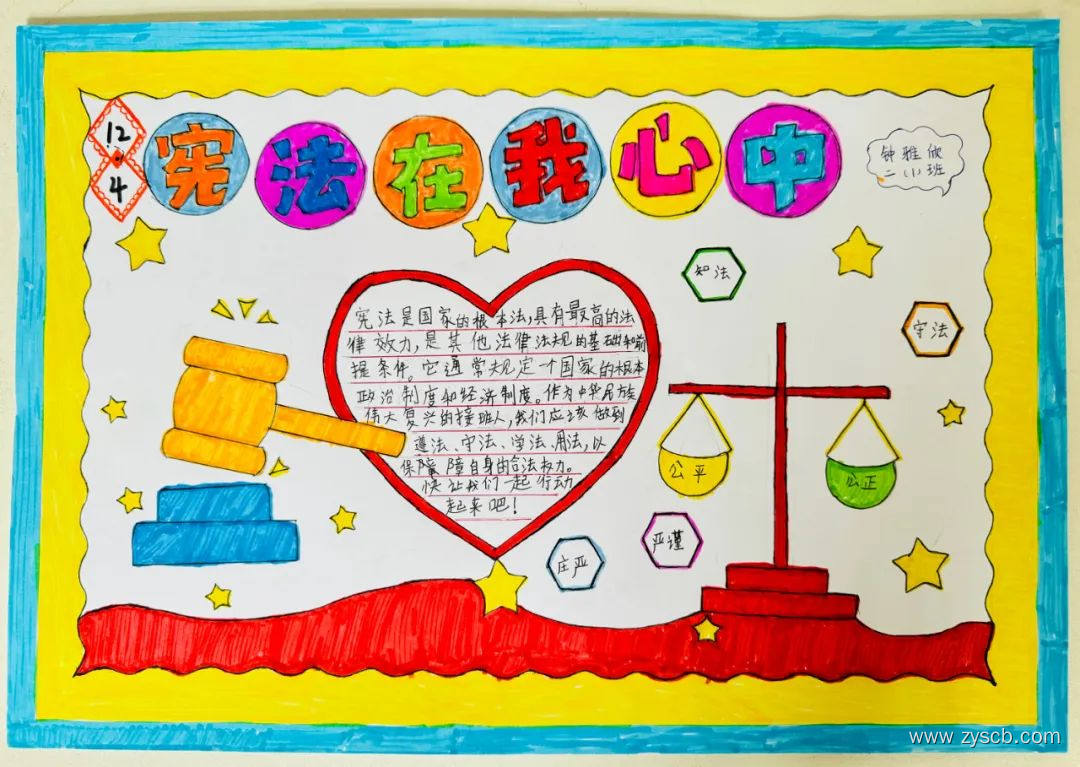 12·4
宪法在我心中
钟雅欣
二(1)班
知法
守法
宪法是国家的根本法,具有最高的法
律效力,是其他法律法规的基础和前
提条件。它通常规定一个国家的根本
政治制度和经济制度。作为中华民族
伟大复兴的接班人,我们应该做到
遵法、守法、学法、用法,以
保障障自身的合法权力。
快让我们一起行动
起来吧!
公平
公正
严谨
庄严
www.zyscb.com